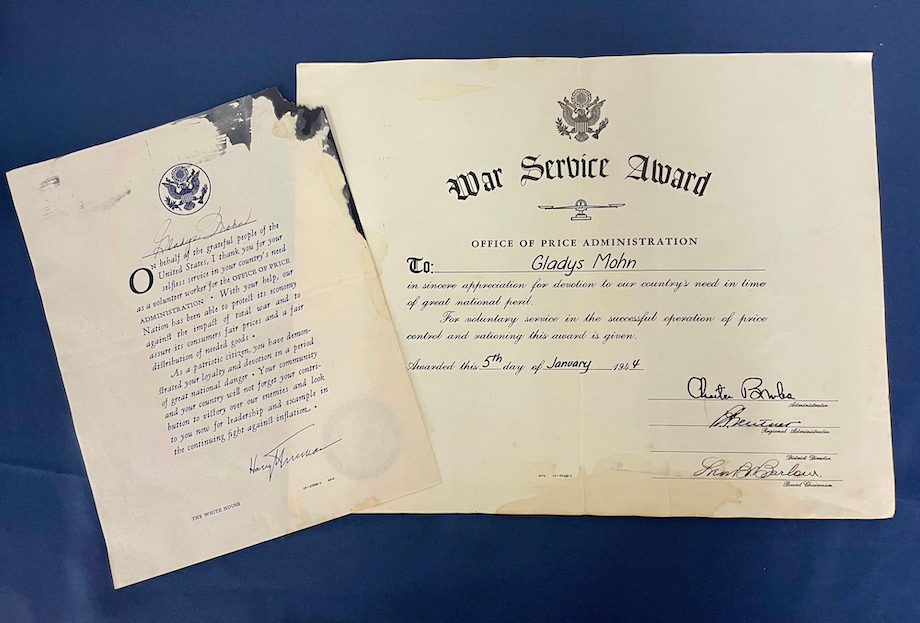 Gladys Mohn
ON behalf of the grateful people of the
United States, I thank you for your
selfless service in your country's need
as a volunteer worker for the OFFICE OF PRICE
ADMINISTRATION • With your help, our
Nation has been able to protect its economy
against the impact of total war and to
assure its consumers fair prices and a fair
distribution of needed goods •
As a patriotic citizen, you have demon-
strated your loyalty and devotion in a period
of great national danger • Your community
and your country will not forget your contri-
bution to victory over our enemies and look
to you now for leadership and example in
the continuing fight against inflation •
Harry Truman
THE WHITE HOUSE
War Service Award
OFFICE OF PRICE ADMINISTRATION
To: Gladys Mohn
in sincere appreciation for devotion to our country's need in time
of great national peril.
For voluntary service in the successful operation of price
control and rationing this award is given.
Awarded this 5th day of January 1944
Chester Bowles
Administrator
Regional Administrator
District Director
Barlow
Board Chairman